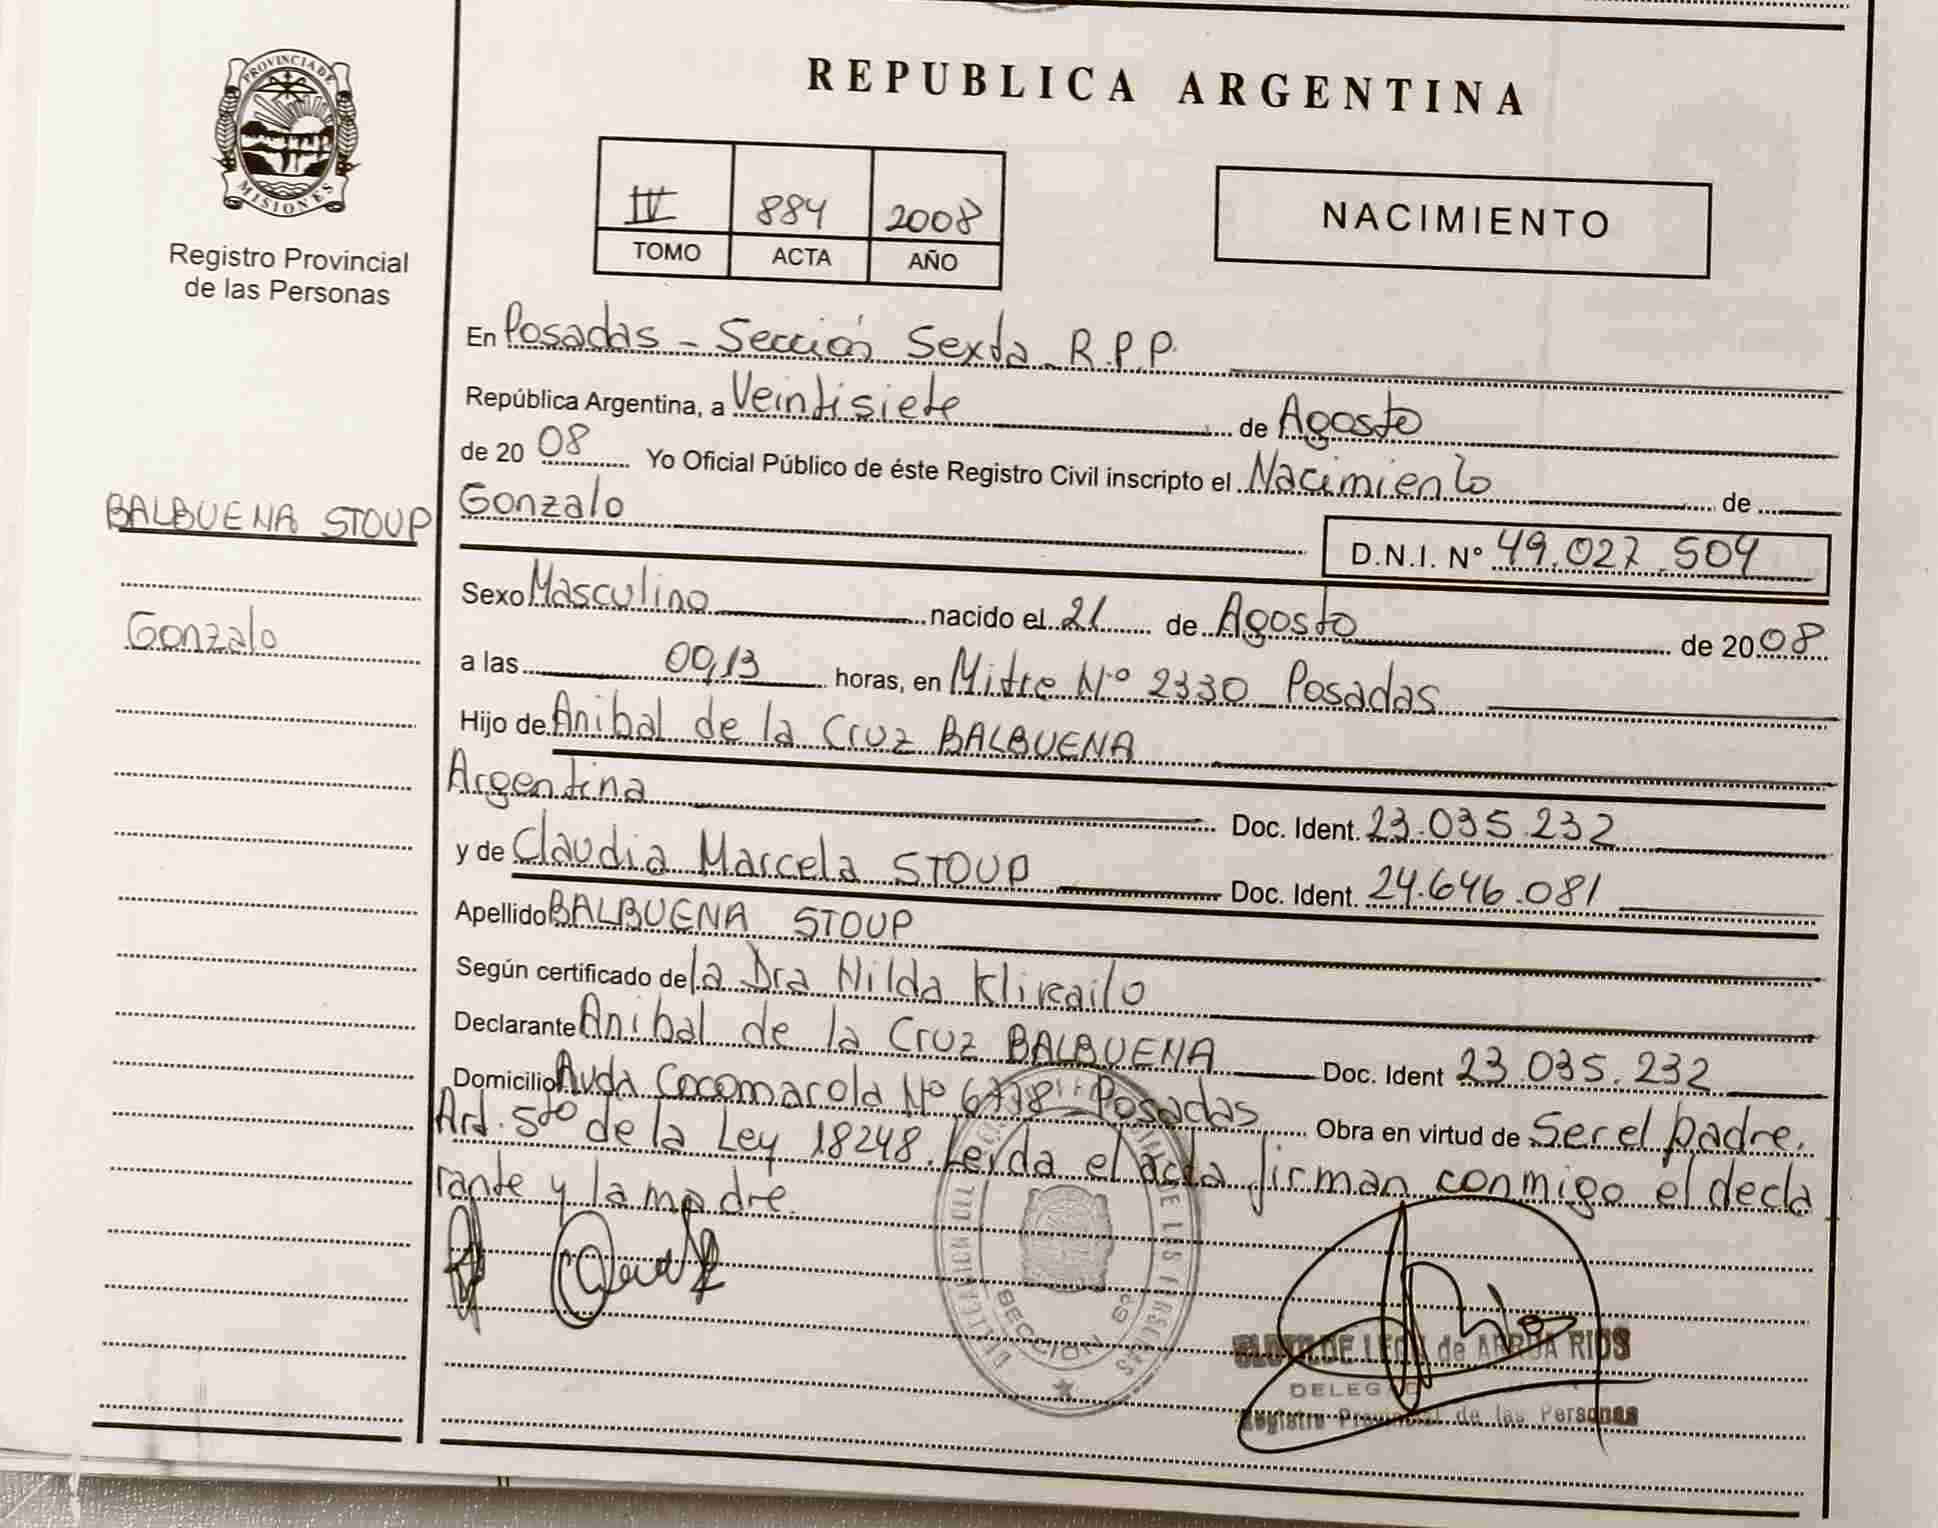 PROVINCIA DE
MISIONES
Registro Provincial
de las Personas
BALBUENA STOUP
Gonzalo
REPUBLICA ARGENTINA
IV 884 2008
TOMO ACTA AÑO
NACIMIENTO
En Posadas - Sección Sexta R.P.P.
República Argentina, a Veintisiete de Agosto
de 20 08 Yo Oficial Público de éste Registro Civil inscripto el Nacimiento de
Gonzalo
D.N.I. Nº 49.027.504
Sexo Masculino nacido el 21 de Agosto de 20 08
a las 00,13 horas, en Mitre Nº 2330 Posadas
Hijo de Anibal de la Cruz BALBUENA
Argentina Doc. Ident. 23.035.232
y de Claudia Marcela STOUP Doc. Ident. 24.646.081
Apellido BALBUENA STOUP
Según certificado de la Dra Nilda
Declarante Anibal de la Cruz BALBUENA Doc. Ident 23.035.232
Domicilio Avda Cocomarola Nº Posadas Obra en virtud de Ser el padre.
Art. 5to de la Ley 18248. Leida el acta firman conmigo el decla
rante y la madre.
SECCION
de ARRUA RIOS
Registro Provincial de las Personas